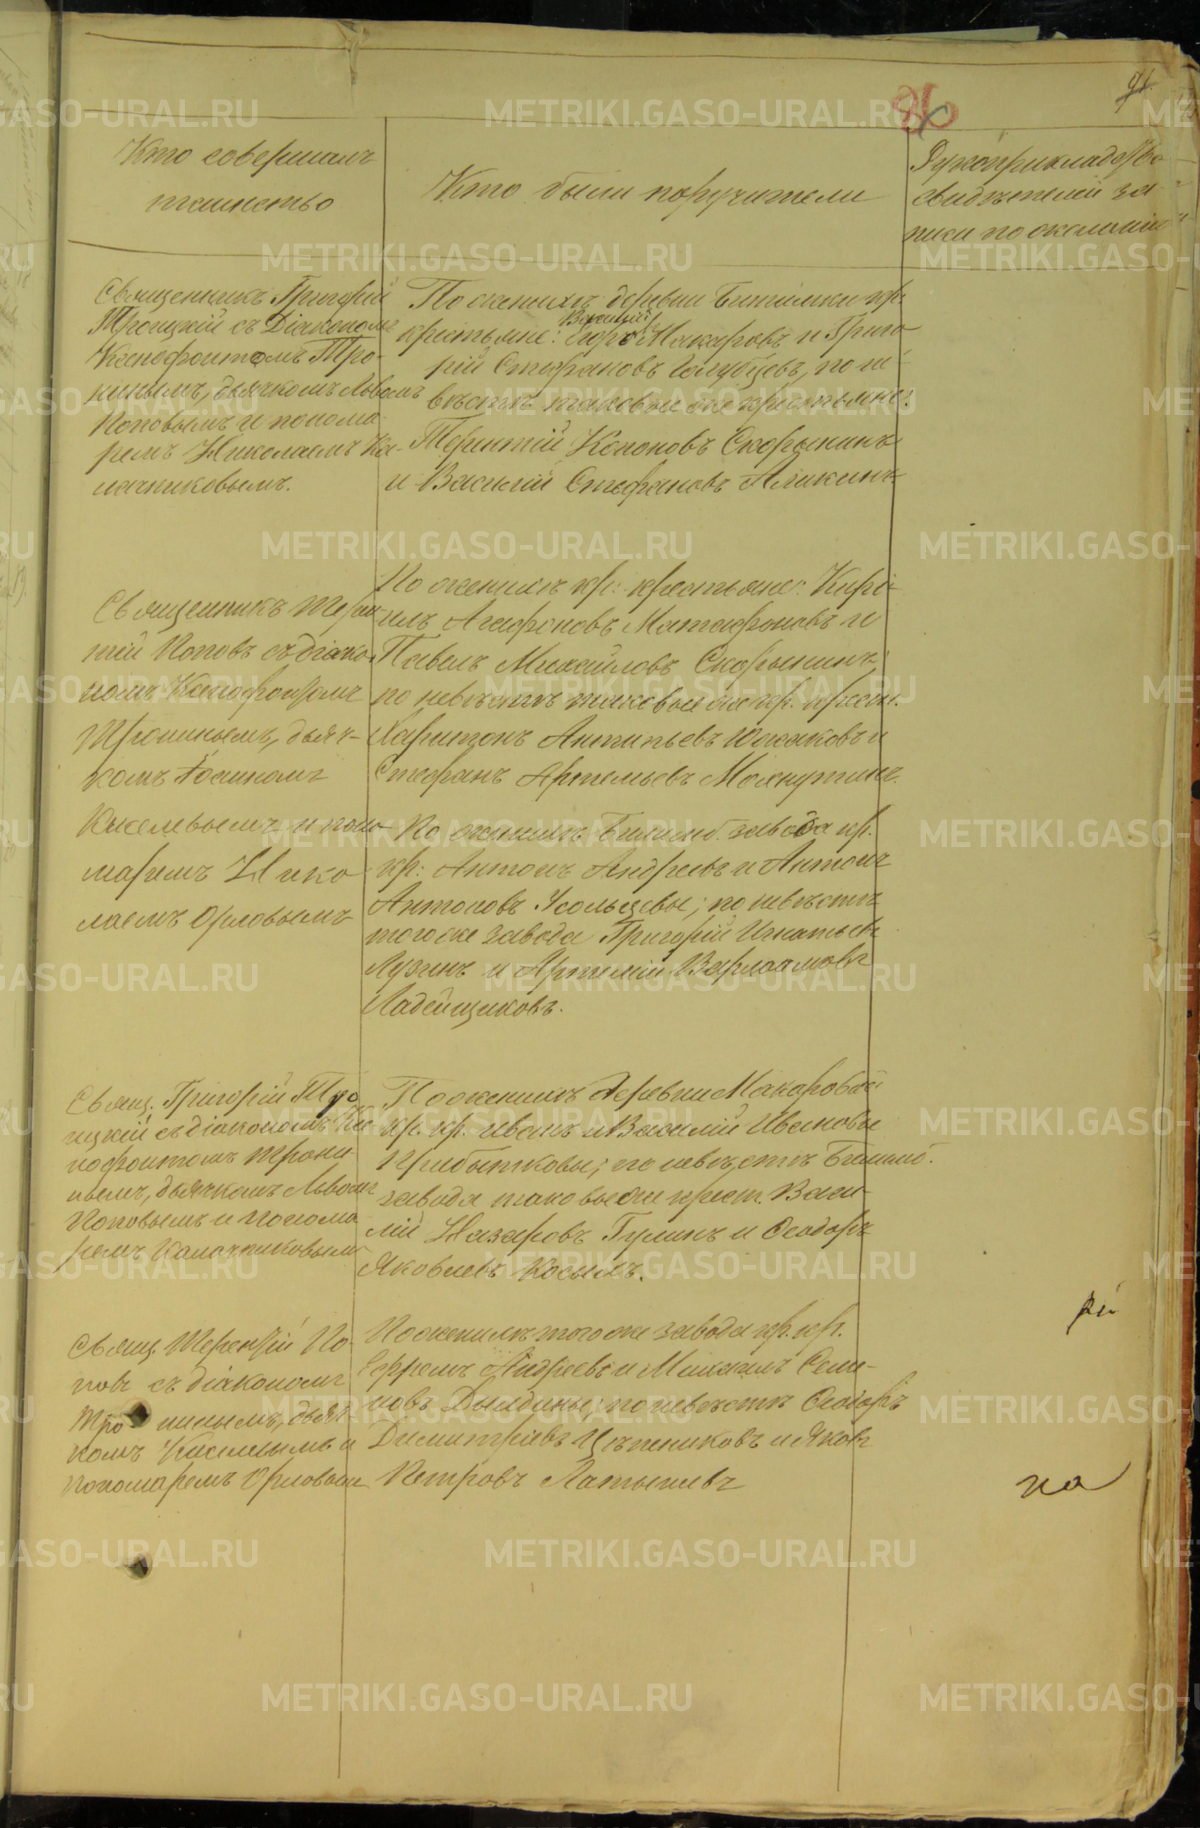 91.
86
Кто совершалъ
таинство
Кто были поручители
Рукоприкладство
свидѣтелей за
писи по желанію
Священникъ Григорій
Троицкій съ Діакономъ
Ксенофонтомъ Тро-
нинымъ, дьячкомъ Львомъ
Поповымъ и понома
ремъ Николаемъ Ка-
лачниковымъ.
По женихѣ деревни Битимки кр.
Василій
крестьяне: Макаровъ и Григо-
рій Стефановъ Голубцевъ, по не
вѣстѣ таковые же крестьяне:
Терентій Кононовъ Скорынинъ
и Василій Стефановъ Аликинъ
Священникъ Терен
тій Поповъ съ діако
номъ Ксенофонтомъ
Тронинымъ, дьяч-
комъ Іоанномъ
Киселевымъ и поно
маремъ Нико
лаемъ Орловымъ
По женихѣ кр: крестьяне: Кири-
илъ Агафоновъ Матафоновъ и
Павелъ Михайловъ Скорынинъ;
по невѣстѣ таковые же кр. крестн.
Харитонъ Антипьевъ и
Стефанъ Артемьевъ
По женихѣ Билимб. завода кр.
кр: Антонъ Андреевъ и Антонъ
Антоновъ Усольцевы; по невѣстѣ
того же завода Григорій Игнатьевъ
Лузинъ и Артемій Варлаамовъ
Ладейщиковъ.
Свящ. Григорій Тро
ицкій съ діакономъ Ксе
нофонтомъ Трони
нымъ, дьячкомъ Львомъ
Поповымъ и понома
ремъ Калачниковымъ
По женихѣ деревни Макаровой
кр. кр. Иванъ и Василій Ивановы
Прибытковы; по невѣстѣ Билимб.
завода таковые же крест. Васи-
лій Назаровъ Гулинъ и Ѳеодоръ
Яковлевъ Косыхъ.
Свящ Терентій По-
повъ съ діакономъ
Тро нинымъ, дьяч
комъ Киселевымъ и
пономаремъ Орловымъ
По женихѣ того же завода кр. кр.
Ефремъ Андреевъ и Михаилъ Семе-
новъ Дылдины; по невѣстѣ Ѳеодоръ
Димитріевъ Цѣпениковъ и Яковъ
Петровъ Латышевъ
ри
на
METRIKI.GASO-URAL.RU